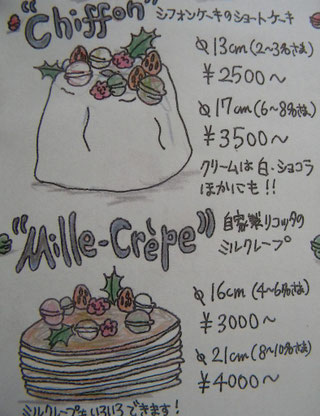 "Chiffon"
シフォンケーキのショートケーキ
φ13cm(2~3名さま)
¥2500~
φ17cm(6~8名さま)
¥3500~
クリームは白・ショコラ
ほかにも!!
"Mille-Crèpe"
自家製リコッタの
ミルクレープ
φ16cm(4~6名さま)
¥3000~
φ21cm(8~10名さま)
¥4000~
ミルクレープもいろいろできます!